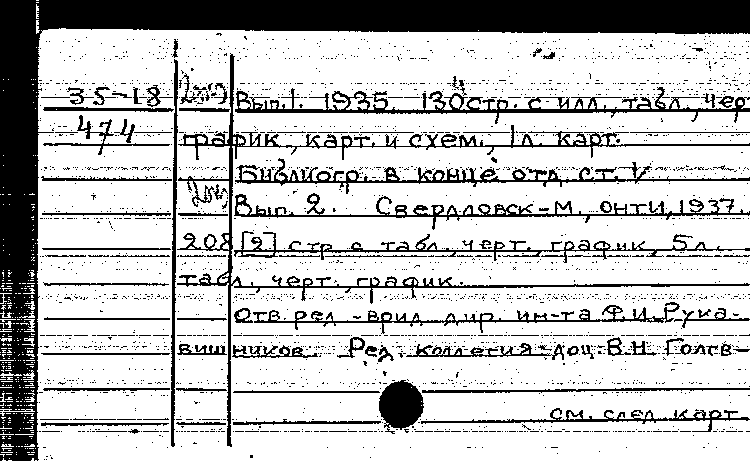 35-18 2оп Вып.1. 1935. 130 стр. с илл., табл., чер
474 график., карт. и схем., 1 л. карт.
Библиогр. в конце отд. ст. V
Вып. 2. Свердловск-М., ОНТИ, 1937.
208,[2] стр. с табл., черт., график., 5 л.
табл., черт., график.
Отв. ред. - врид. дир. ин-та Ф.И. Рука-
вишников. Ред. коллегия: доц. В.Н. Голов-
см. след. карт